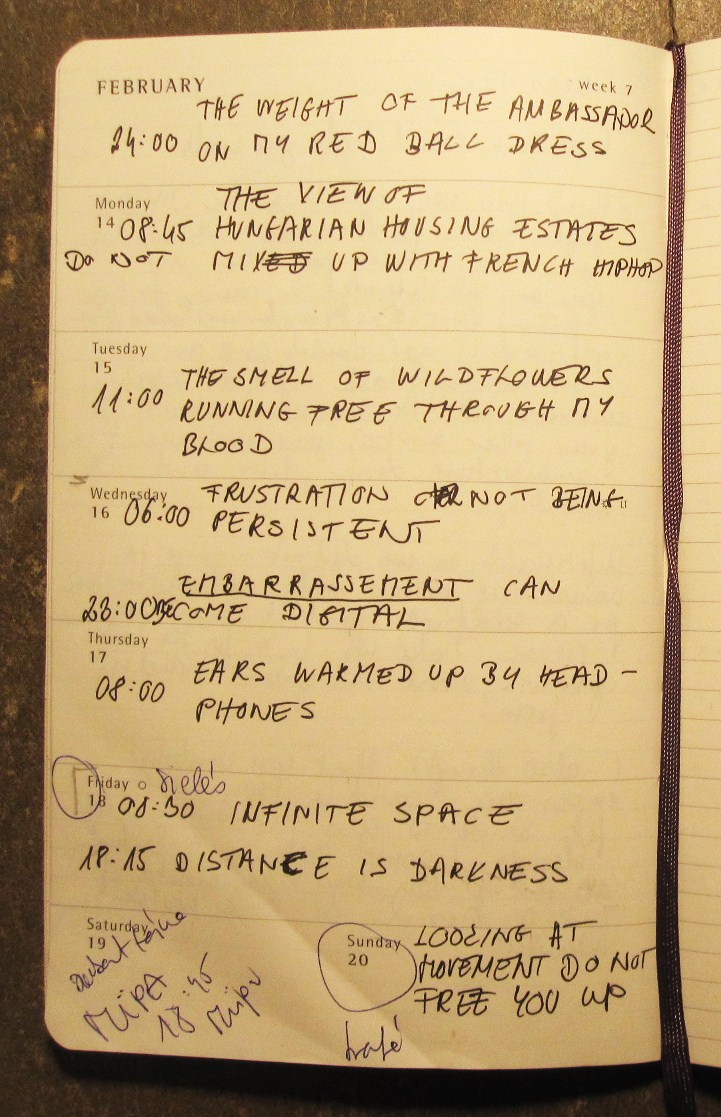 FEBRUARY week 7
THE WEIGHT OF THE AMBASSADOR
24:00 ON MY RED BALL DRESS
Monday THE VIEW OF
14 08:45 HUNGARIAN HOUSING ESTATES
DO NOT MIXED UP WITH FRENCH HIPHOP
Tuesday
15
11:00 THE SMELL OF WILDFLOWERS
RUNNING FREE THROUGH MY
BLOOD
Wednesday FRUSTRATION NOT BEING
16 06:00 PERSISTENT
EMBARRASSEMENT CAN
23:00 BECOME DIGITAL
Thursday
17
08:00 EARS WARMED UP BY HEAD-
PHONES
Friday
18 08:30 INFINITE SPACE
18:15 DISTANCE IS DARKNESS
Saturday
19
MÜPA
18:45
Müpa
Sunday
20
LOOKING AT
MOVEMENT DO NOT
FREE YOU UP